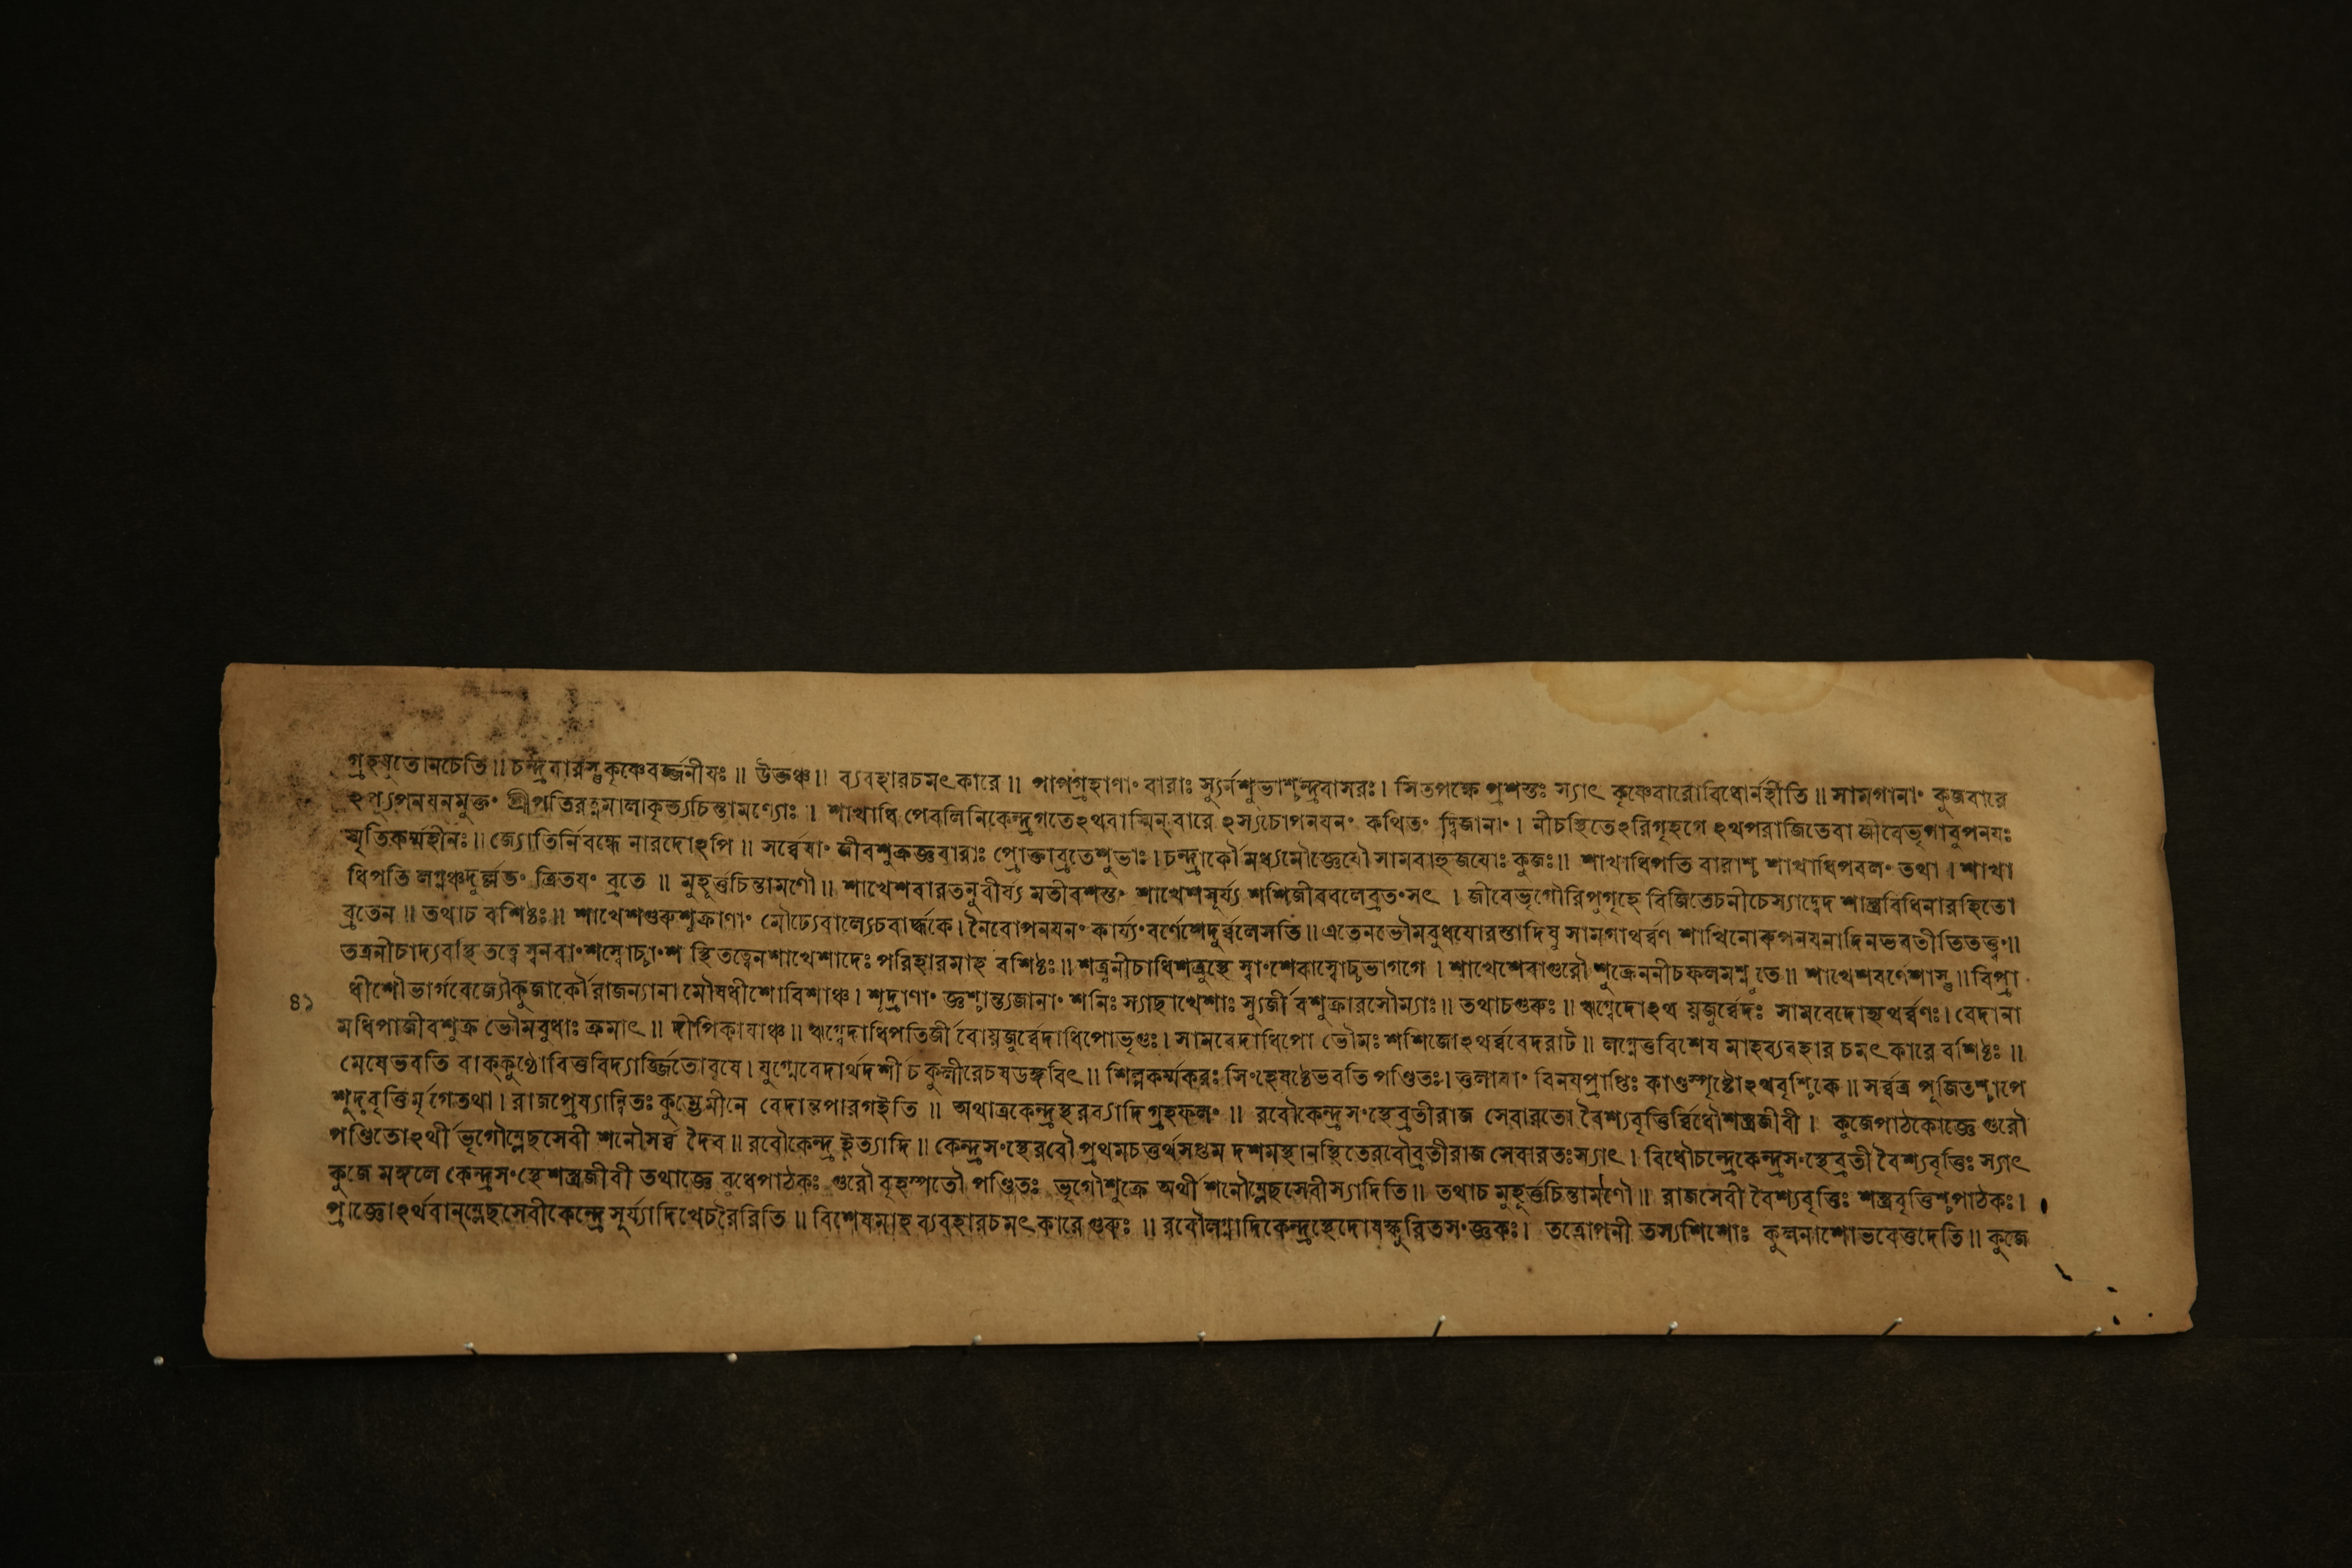 গ্রহযুতোনচেতি॥ চন্দ্রবারস্তু কৃষ্ণেবর্জ্জনীযঃ॥ উক্তঞ্চ॥ ব্যবহারচমৎকারে॥ পাপগ্রহাণাং বারাঃ স্যুর্নশুভাশ্চন্দ্রবাসরঃ। সিতপক্ষে প্রশস্তঃ স্যাৎ কৃষ্ণেবারোবিধোর্নহীতি॥ সামগানাং কুজবারে
ঽপ্যুপনযনমুক্তং শ্রীপতিরত্নমালাকৃত্যচিন্তামণ্যোঃ। শাখাধিপেবলিনিকেন্দ্রগতেঽথবাস্মিন্ বারে ঽস্যচোপনযনং কথিতং দ্বিজানাং। নীচস্থিতেঽরিগৃহগে ঽথপরাজিতেবা জীবেভৃগাবুপনযঃ
স্মৃতিকর্ম্মহীনঃ॥ জ্যোতির্নিবন্ধে নারদোঽপি॥ সর্ব্বেষাং জীবশুক্রজ্ঞবারাঃ প্রোক্তাব্রতেশুভাঃ। চন্দ্রার্কৌ মধ্যমৌজ্ঞেযৌ সামবাহুজযোঃ কুজঃ॥ শাখাধিপতি বারাশ্চ শাখাধিপবলং তথা। শাখা
ধিপতি লগ্নঞ্চদুর্ল্লভং ত্রিতযং ব্রতে॥ মুহূর্ত্তচিন্তামণৌ॥ শাখেশবারতনুবীর্য্য মতীবশস্তং শাখেশসূর্য্য শশিজীববলেব্রতংসৎ। জীবেভৃগৌরিপুগৃহে বিজিতেচনীচেস্যাদ্বেদ শাস্ত্রবিধিনারহিতো
ব্রতেন॥ তথাচ বশিষ্ঠঃ॥ শাখেশগুরুশুক্রাণাং মৌঢ্যেবাল্যেচবার্দ্ধকে। নৈবোপনযনং কার্য্যং বর্ণেশেদুর্ব্বলেসতি॥ এতেনভৌমবুধযোরস্তাদিষু সামগাথর্ব্বণ শাখিনোরুপনযনাদিনভবতীতিতত্ত্বং॥
তত্রনীচাদ্যবস্থি তত্বে স্বনবাংশস্বোচ্চাংশ স্থিতত্বেনশাখেশাদেঃ পরিহারমাহ বশিষ্ঠঃ॥ শত্রুনীচাধিশত্রুস্থে স্বাংশেবাস্বোচ্চভাগগে। শাখেশেবাগুরৌ শুক্রেননীচফলমশ্নুতে॥ শাখেশবর্ণেশাস্তু॥ বিপ্রা
ধীশৌভার্গবেজ্যৌকুজার্কৌ রাজন্যানা মৌষধীশোবিশাঞ্চ। শূদ্রাণাং জ্ঞশ্চান্ত্যজানাং শনিঃ স্যাচ্ছাখেশাঃ স্যুর্জী বশুক্রারসৌম্যাঃ॥ তথাচগুরুঃ॥ ঋগ্বেদোঽথ য়জুর্ব্বেদঃ সামবেদোহ্যথর্ব্বণঃ। বেদানা
৪১
মধিপাজীবশুক্র ভৌমবুধাঃ ক্রমাৎ॥ দীপিকাযাঞ্চ॥ ঋগ্বেদাধিপতির্জী বোয়জুর্ব্বেদাধিপোভৃগুঃ। সামবেদাধিপো ভৌমঃ শশিজোঽথর্ব্ববেদরাট॥ লগ্নেত্তবিশেষ মাহব্যবহার চমৎকারে বশিষ্ঠঃ॥
মেষেভবতি বাক্কুণ্ঠোবিত্তবিদ্যার্জ্জিতোবৃষে। যুগ্মেবেদার্থদর্শী চ কুলীরেচষডঙ্গবিৎ॥ শিল্পকর্ম্মকরঃ সিংহেষষ্ঠেভবতি পণ্ডিতঃ। ত্তলাযাং বিনযপ্রাপ্তিঃ কাণ্ডস্পৃষ্টোঽথবৃশ্চিকে॥ সর্ব্বত্র পূজিতশ্চাপে
শূদ্রবৃত্তির্মৃগেতথা। রাজপ্রেষ্যান্বিতঃ কুম্ভেমীনে বেদান্তপারগইতি॥ অথাত্রকেন্দ্রস্থরব্যাদি গ্রহফলং॥ রবৌকেন্দ্রসংস্থেব্রতীরাজ সেবারতো বৈশ্যবৃত্তির্ব্বিধৌশস্ত্রজীবী। কুজেপাঠকোজ্ঞে গুরৌ
পণ্ডিতোঽর্থী ভৃগৌম্লেছসেবী শনৌসর্ব্ব দৈব॥ রবৌকেন্দ্র ইত্যাদি॥ কেন্দ্রসংস্থেরবৌ প্রথমচতুর্থসপ্তম দশমস্থানস্থিতেরবৌব্রতীরাজ সেবারতঃস্যাৎ। বিধৌচন্দ্রেকেন্দ্রসংস্থেব্রতী বৈশ্যবৃত্তিঃ স্যাৎ
কুজে মঙ্গলে কেন্দ্রসংস্থেশস্ত্রজীবী তথাজ্ঞে বুধেপাঠকঃ গুরৌ বৃহস্পতৌ পণ্ডিতঃ ভৃগৌশুক্রে অর্থী শনৌম্লেছসেবীস্যাদিতি॥ তথাচ মুহূর্ত্তচিন্তামণৌ॥ রাজসেবী বৈশ্যবৃত্তিঃ শস্ত্রবৃত্তিশ্চপাঠকঃ।
প্রাজ্ঞোঽর্থবান্ম্লেছসেবীকেন্দ্রে সূর্য্যাদিখেচরৈরিতি॥ বিশেষমাহ ব্যবহারচমৎকারে গুরুঃ॥ রবৌলগ্নাদিকেন্দ্রস্থেদোষস্ফুরিতসংজ্ঞকঃ। তত্রোপনী তস্যশিশোঃ কুলনাশোভবেত্তদেতি॥ কুজে